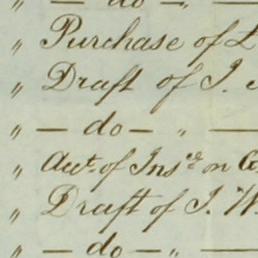 " — do — " —
" Purchase of L
" Draft of J.
" — do — " —
" Acct. of Insce. on C
" Draft of J. W
" — do — " —